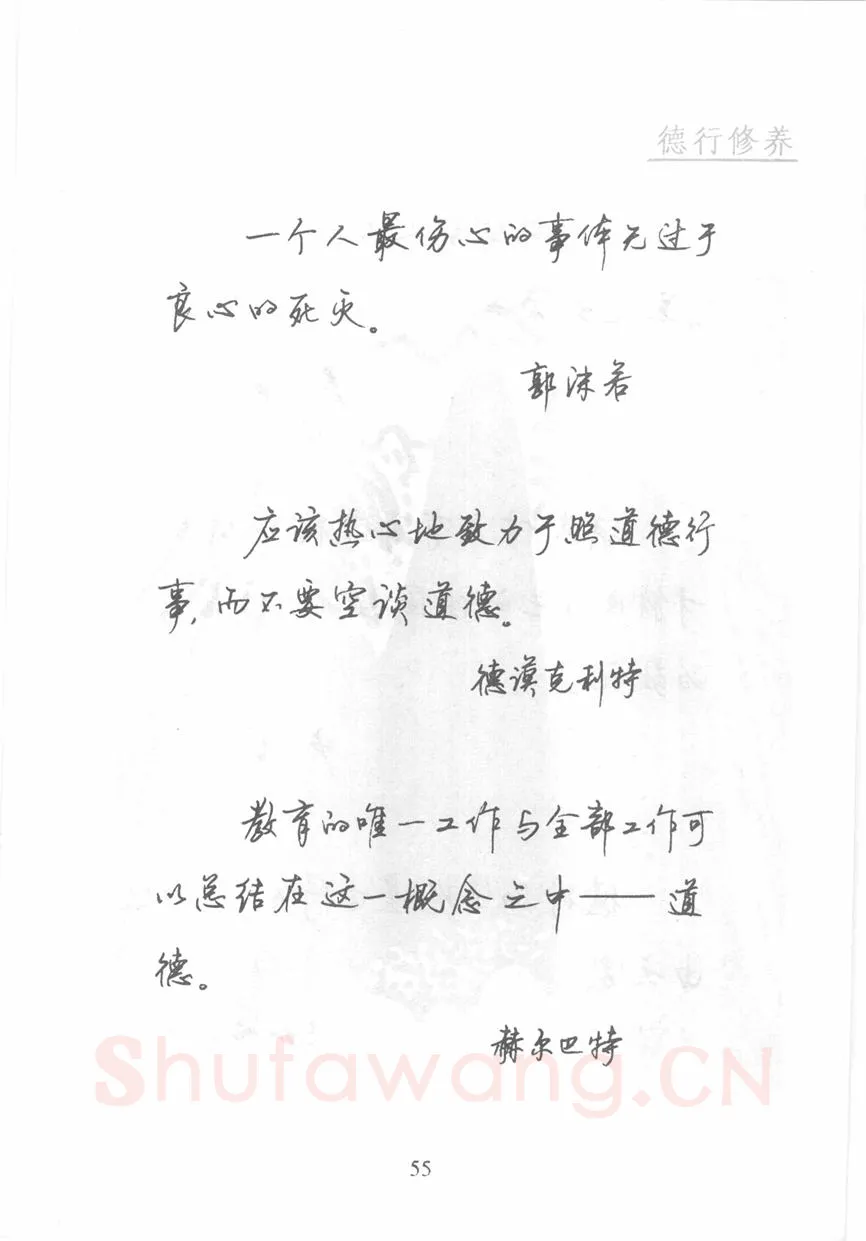 德行修养
一个人最伤心的事体无过于
良心的死灭。
郭沫若
应该热心地致力于照道德行
事,而不要空谈道德。
德谟克利特
教育的唯一工作与全部工作可
以总结在这一概念之中——道
德。
赫尔巴特
Shufawang.CN
55